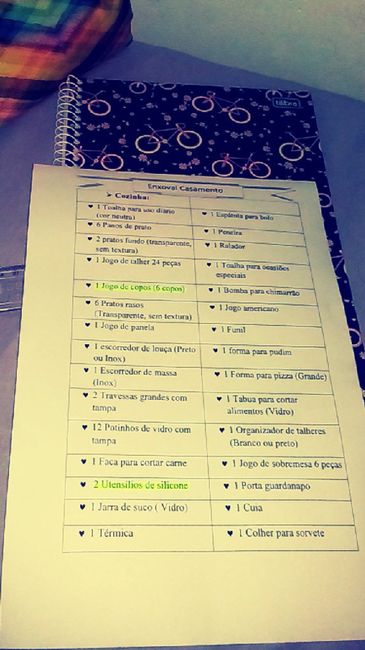 tilibra
Enxoval Casamento
➤ Cozinha:
♥ 1 Toalha para uso diário
(cor neutra)
♥ 1 Espátula para bolo
♥ 6 Panos de prato
♥ 1 Peneira
♥ 2 pratos fundo (transparente,
sem textura)
♥ 1 Ralador
♥ 1 Jogo de talher 24 peças
♥ 1 Toalha para ocasiões
especiais
♥ 1 Jogo de copos (6 copos)
♥ 1 Bomba para chimarrão
♥ 6 Pratos rasos
(Transparente, sem textura)
♥ 1 Jogo americano
♥ 1 Jogo de panela
♥ 1 Funil
♥ 1 escorredor de louça (Preto
ou Inox)
♥ 1 forma para pudim
♥ 1 Escorredor de massa
(Inox)
♥ 1 Forma para pizza (Grande)
♥ 2 Travessas grandes com
tampa
♥ 1 Tabua para cortar
alimentos (Vidro)
♥ 12 Potinhos de vidro com
tampa
♥ 1 Organizador de talheres
(Branco ou preto)
♥ 1 Faca para cortar carne
♥ 1 Jogo de sobremesa 6 peças
♥ 2 Utensílios de silicone
♥ 1 Porta guardanapo
♥ 1 Jarra de suco ( Vidro)
♥ 1 Cuia
♥ 1 Térmica
♥ 1 Colher para sorvete